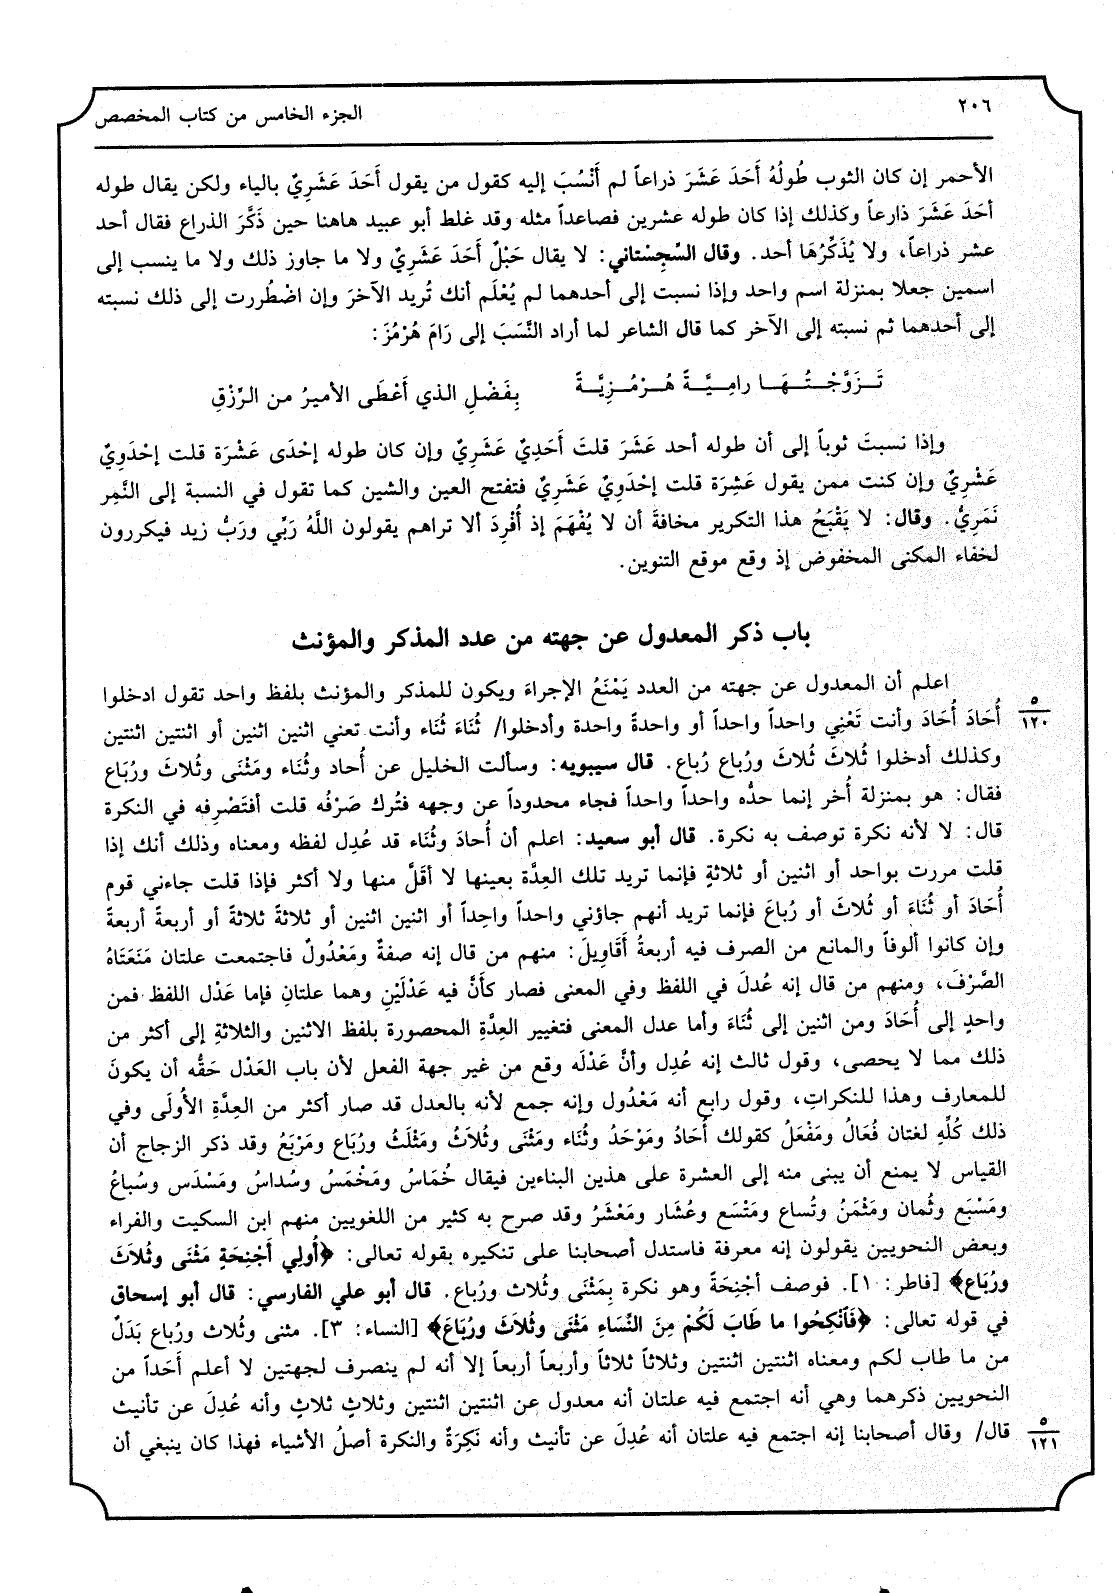 ٢٠٦
الجزء الخامس من كتاب المخصص
الأحمر إن كان الثوب طُولُهُ أَحَدَ عَشَرَ ذراعاً لم أَنْسُبَ إليه كقول من يقول أَحَدَ عَشَرِيٌ بالياء ولكن يقال طوله
أحَدَ عَشَرَ ذارعاً وكذلك إذا كان طوله عشرين فصاعداً مثله وقد غلط أبو عبيد هاهنا حين ذَكَّرَ الذراع فقال أحد
عشر ذراعاً، ولا يُذَكِّرُهَا أحد. وقال السِّجِسْتاني: لا يقال حَبْلٌ أَحَدَ عَشَرِيٌ ولا ما جاوز ذلك ولا ما ينسب إلى
اسمين جعلا بمنزلة اسم واحد وإذا نسبت إلى أحدهما لم يُعْلَم أنك تُريد الآخرَ وإن اضْطُررت إلى ذلك نسبته
إلى أحدهما ثم نسبته إلى الآخر كما قال الشاعر لما أراد النَّسَبَ إلى رَامَ هُرْمُزَ:
تَـزَوَّجْـتُـهَـا رامِـيَّـةً هُـرْمُـزِيَّـةً بِفَضْلِ الذي أَعْطَى الأميرُ من الرِّزْقِ
وإذا نسبتَ ثوباً إلى أن طوله أحد عَشَرَ قلتَ أَحَدِيٌ عَشَرِيٌ وإن كان طوله إحْدَى عَشْرَة قلت إحْدَوِيٌ
عَشْرِيٌ وإن كنت ممن يقول عَشِرَة قلت إحْدَوِيٌ عَشَرِيٌ فتفتح العين والشين كما تقول في النسبة إلى النَّمِر
نَمَرِيٌّ. وقال: لا يَقْبَحُ هذا التكرير مخافةَ أن لا يُفْهَمَ إذ أُفْرِدَ ألا تراهم يقولون اللَّهُ رَبِّي ورَبُّ زيد فيكررون
لخفاء المكنى المخفوض إذ وقع موقع التنوين.
باب ذكر المعدول عن جهته من عدد المذكر والمؤنث
اعلم أن المعدول عن جهته من العدد يَمْنَعُ الإجراءَ ويكون للمذكر والمؤنث بلفظ واحد تقول ادخلوا
٥
١٢٠
أُحَادَ أُحَادَ وأنت تَعْنِي واحداً واحداً أو واحدةً واحدة وأدخلوا/ ثُنَاءَ ثُنَاء وأنت تعني اثنين اثنين أو اثنتين اثنتين
وكذلك أدخلوا ثُلاثَ ثُلاثَ ورُباع رُباع. قال سيبويه: وسألت الخليل عن أُحاد وثُنَاء ومَثْنَى وثُلاثَ ورُبَاع
فقال: هو بمنزلة أُخر إنما حدُّه واحداً واحداً فجاء محدوداً عن وجهه فتُرك صَرْفُه قلت أفتَصْرِفه في النكرة
قال: لا لأنه نكرة توصف به نكرة. قال أبو سعيد: اعلم أن أُحادَ وثُنَاء قد عُدِل لفظه ومعناه وذلك أنك إذا
قلت مررت بواحد أو اثنين أو ثلاثةٍ فإنما تريد تلك العِدَّة بعينها لا أقَلَّ منها ولا أكثر فإذا قلت جاءني قوم
أُحَادَ أو ثُنَاءَ أو ثُلاثَ أو رُباعَ فإنما تريد أنهم جاؤني واحداً واحِداً أو اثنين اثنين أو ثلاثةً ثلاثةً أو أربعةً أربعةً
وإن كانوا ألوفاً والمانع من الصرف فيه أربعةُ أَقَاوِيلَ: منهم من قال إنه صفةٌ ومَعْدُولٌ فاجتمعت علتان مَنَعَتَاهُ
الصَّرْفَ، ومنهم من قال إنه عُدلَ في اللفظ وفي المعنى فصار كأَنَّ فيه عَدْلَيْنِ وهما علتانِ فإما عَدْل اللفظ فمن
واحدٍ إلى أُحَادَ ومن اثنين إلى ثُنَاءَ وأما عدل المعنى فتغيير العِدَّةِ المحصورة بلفظ الاثنين والثلاثةِ إلى أكثر من
ذلك مما لا يحصى، وقول ثالث إنه عُدِل وأنَّ عَدْلَه وقع من غير جهة الفعل لأن باب العَدْل حَقُّه أن يكونَ
للمعارف وهذا للنكراتِ، وقول رابع أنه مَعْدُول وإنه جمع لأنه بالعدل قد صار أكثر من العِدَّةِ الأُولَى وفي
ذلك كُلِّهِ لغتان فُعَالُ ومَفْعَلُ كقولك أُحَادُ ومَوْحَدُ وثُنَاء ومَثْنَى وثُلاَثُ ومَثْلَثُ ورُبَاع ومَرْبَعُ وقد ذكر الزجاج أن
القياس لا يمنع أن يبنى منه إلى العشرة على هذين البناءين فيقال خُمَاسُ ومَخْمَسُ وسُداسُ ومَسْدَس وسُباعُ
ومَسْبَع وثُمان ومَثْمَنُ وتُساع ومَتْسَع وعُشَار ومَعْشَرُ وقد صرح به كثير من اللغويين منهم ابن السكيت والفراء
وبعض النحويين يقولون إنه معرفة فاستدل أصحابنا على تنكيره بقوله تعالى: ﴿أُولِي أَجْنِحَةٍ مَثْنَى وثُلاَثَ
ورُبَاع﴾ [فاطر: ١]. فوصف أجْنِحَةً وهو نكرة بِمَثْنَى وثُلاث ورُباع. قال أبو علي الفارسي: قال أبو إسحاق
في قوله تعالى: ﴿فَآنْكِحُوا ما طَابَ لَكُمْ مِنَ النِّسَاءِ مَثْنَى وثُلاَثَ ورُبَاعَ﴾ [النساء: ٣]. مثنى وثُلاث ورُباع بَدَلٌ
من ما طاب لكم ومعناه اثنتين اثنتين وثلاثاً ثلاثاً وأربعاً أربعاً إلا أنه لم ينصرف لجهتين لا أعلم أَحَداً من
النحويين ذكرهما وهي أنه اجتمع فيه علتان أنه معدول عن اثنتين اثنتين وثلاثٍ ثلاثٍ وأنه عُدِلَ عن تأنيث
٥
١٢١
قال/ وقال أصحابنا إنه اجتمع فيه علتان أنه عُدِلَ عن تأنيث وأنه نَكِرَةٌ والنكرة أصلُ الأشياء فهذا كان ينبغي أن